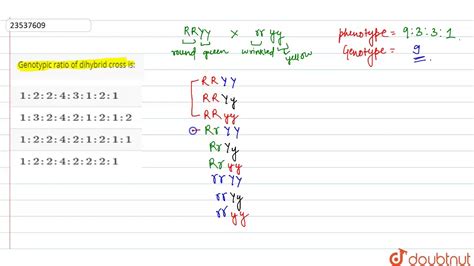 23537609
Genotypic ratio of dihybrid cross is:
1 : 2 : 2 : 4 : 3 : 1 : 2 : 1
1 : 3 : 2 : 4 : 2 : 1 : 2 : 1 : 2
1 : 2 : 2 : 4 : 2 : 1 : 2 : 1 : 1
1 : 2 : 2 : 4 : 2 : 2 : 2 : 1
RRYy × rr yy
round green wrinkled yellow
phenotype = 9:3:3:1.
Genotype = 9
RR YY
RR Yy
RR yy
Rr YY
Rr Yy
Rr yy
rr YY
rr Yy
rr yy
doubtnut